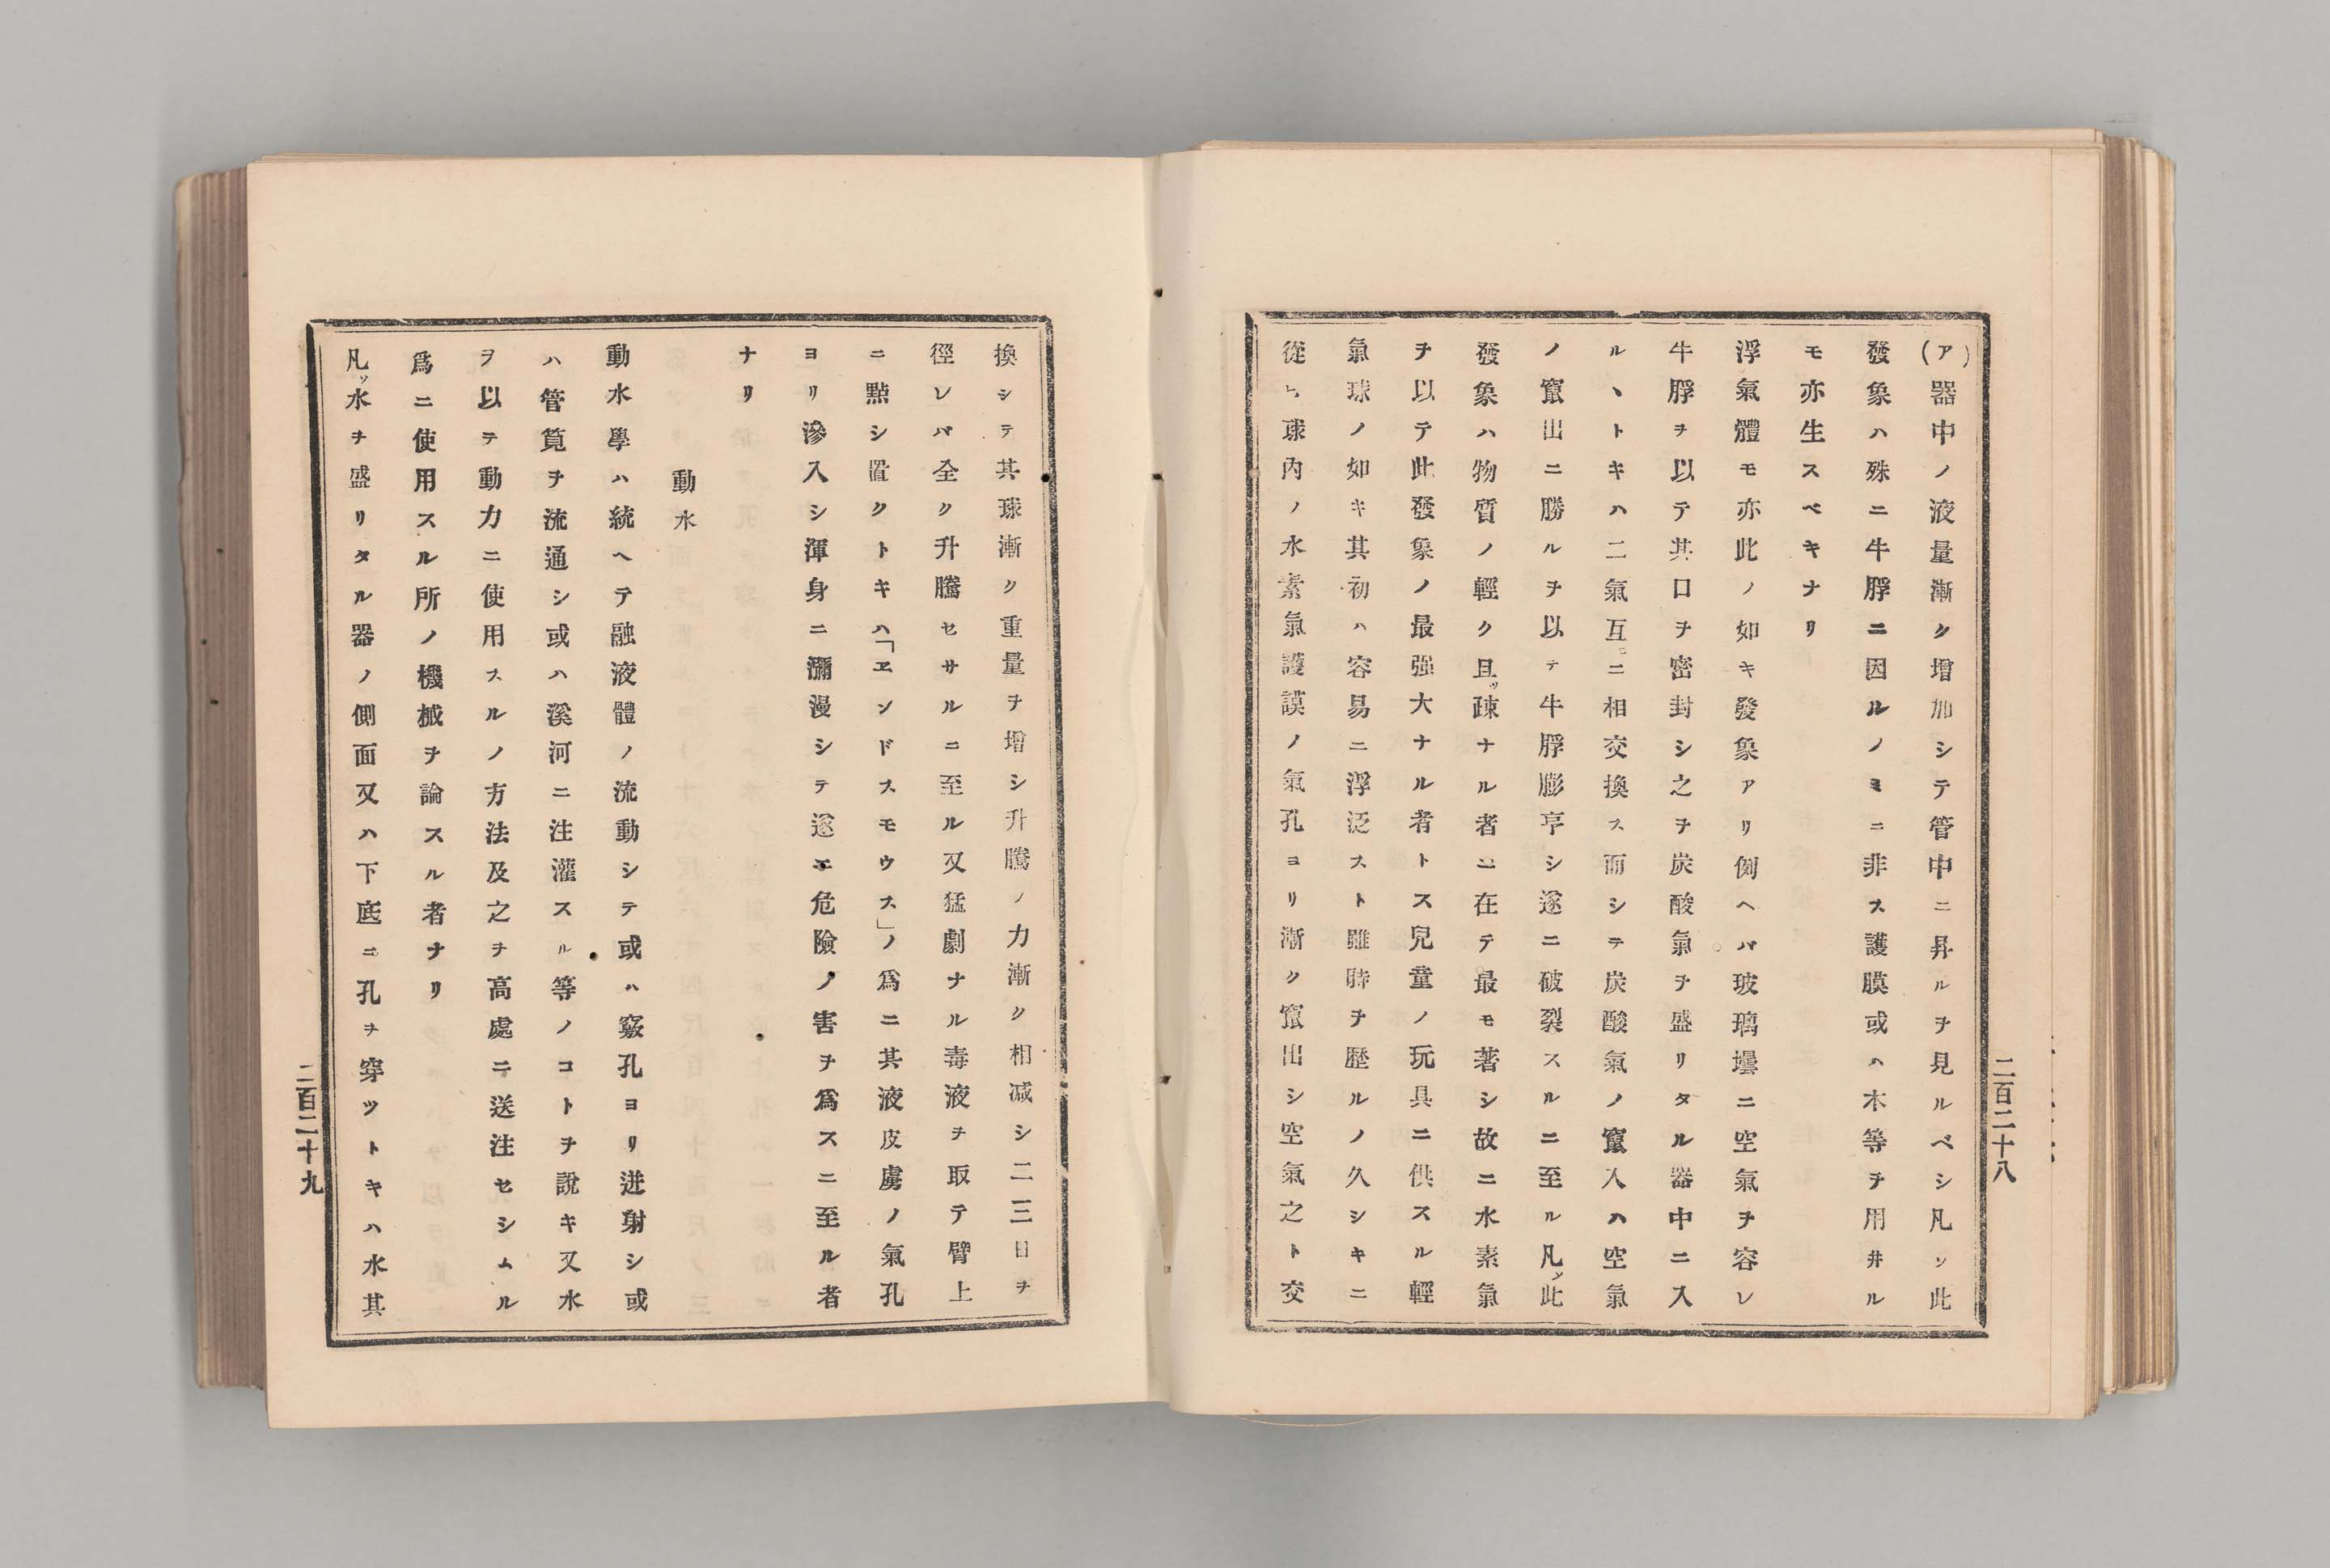 (ア)器中ノ液量漸ク増加シテ管中ニ昇ルヲ見ルベシ凡ソ此
發象ハ殊ニ牛脬ニ因ルノミニ非ス護膜或ハ木等ヲ用井ル
モ亦生スベキナリ
浮氣體モ亦此ノ如キ發象アリ例ヘバ玻璃壜ニ空氣ヲ容レ
牛脬ヲ以テ其口ヲ密封シ之ヲ炭酸氣ヲ盛リタル器中ニ入
ルヽトキハ二氣互ニ相交換ス而シテ炭酸氣ノ竄入ハ空氣
ノ竄出ニ勝ルヲ以テ牛脬膨亨シ遂ニ破裂スルニ至ル凡ソ此
發象ハ物質ノ輕ク且ツ疎ナル者ニ在テ最モ著シ故ニ水素氣
ヲ以テ此發象ノ最强大ナル者トス兒童ノ玩具ニ供スル輕
氣球ノ如キ其初ハ容易ニ浮泛スト雖時ヲ歷ルノ久シキニ
從ヒ球內ノ水素氣護謨ノ氣孔ヨリ漸ク竄出シ空氣之ト交
二百二十八
換シテ其球漸ク重量ヲ增シ升騰ノ力漸ク相減シ二三日ヲ
徑レバ全ク升騰セサルニ至ル又猛劇ナル毒液ヲ取テ臂上
ニ點シ置クトキハ「ヱンドスモウス」ノ爲ニ其液皮膚ノ氣孔
ヨリ滲入シ渾身ニ瀰漫シテ遂ニ危險ノ害ヲ爲スニ至ル者
ナリ
動水
動水學ハ統ヘテ融液體ノ流動シテ或ハ竅孔ヨリ迸射シ或
ハ管筧ヲ流通シ或ハ溪河ニ注灌スル等ノコトヲ說キ又水
ヲ以テ動力ニ使用スルノ方法及之ヲ高處ニ送注セシムル
爲ニ使用スル所ノ機械ヲ論スル者ナリ
凡ソ水ヲ盛リタル器ノ側面又ハ下底ニ孔ヲ穿ツトキハ水其
二百二十九